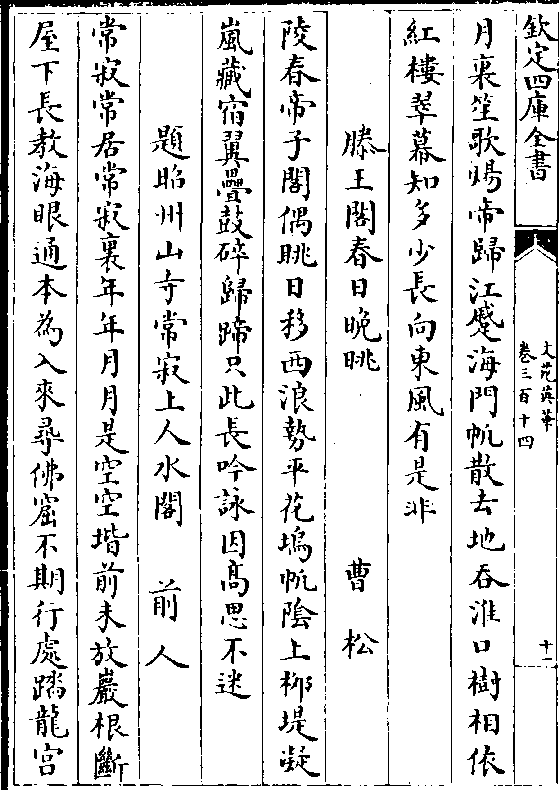 欽定四庫全書
文苑英華
卷三百十四
十一
月裏笙歌煬帝歸江蹙海門帆散去地吞淮口樹相依
紅樓翠幕知多少長向東風有是非
滕王閣春日晚眺　曹松
陵春帝子閣偶眺日移西浪勢平花塢帆陰上柳堤凝
嵐藏宿翼疊鼓碎歸蹄只此長吟詠因髙思不迷
題昭州山寺常寂上人水閣　前人
常寂常居常寂裏年年月月是空空堦前未放巖根斷
屋下長教海眼通本為入來尋佛窟不期行處蹋龍宫